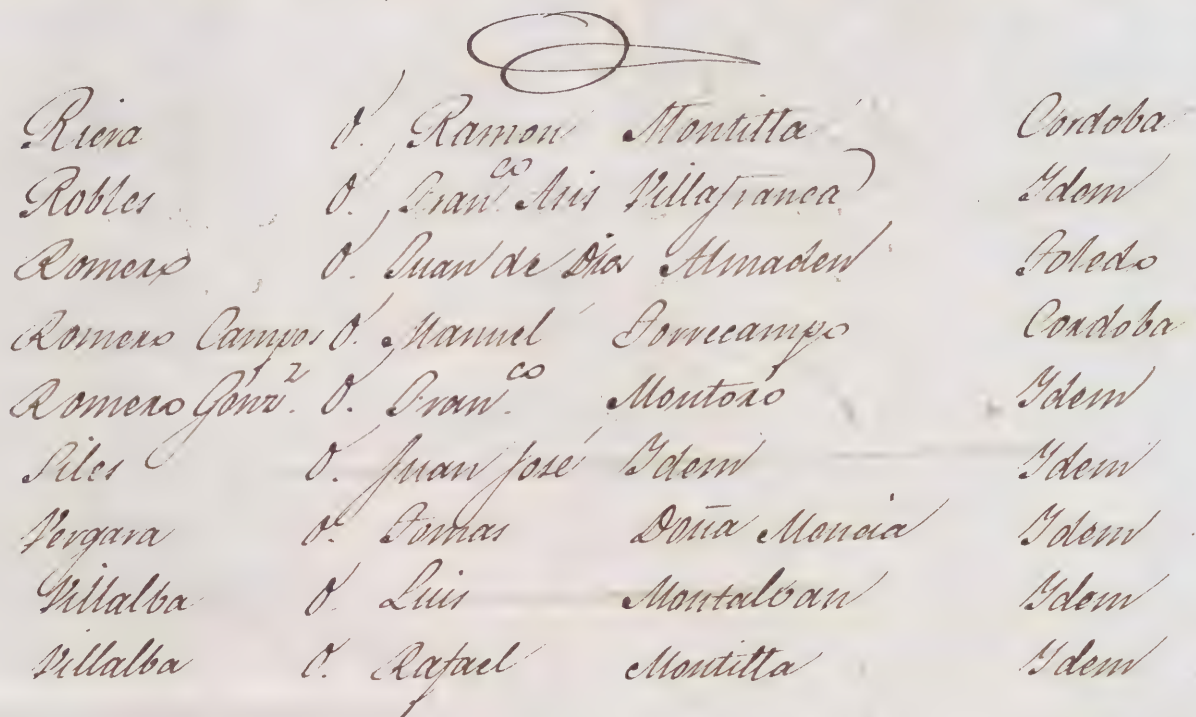 Riera D. Ramon Montilla Cordoba
Robles D. Fran.co Asis Villafranca Ydem
Romero D. Juan de Dios Almaden Toledo
Romero Campos D. Manuel Torrecampo Cordoba
Romero Gonz.z D. Fran.co Montoro Ydem
Siles D. Juan José Ydem Ydem
Vergara D. Tomas Doña Mencia Ydem
Villalba D. Luis Montalban Ydem
Villalba D. Rafael Montilla Ydem